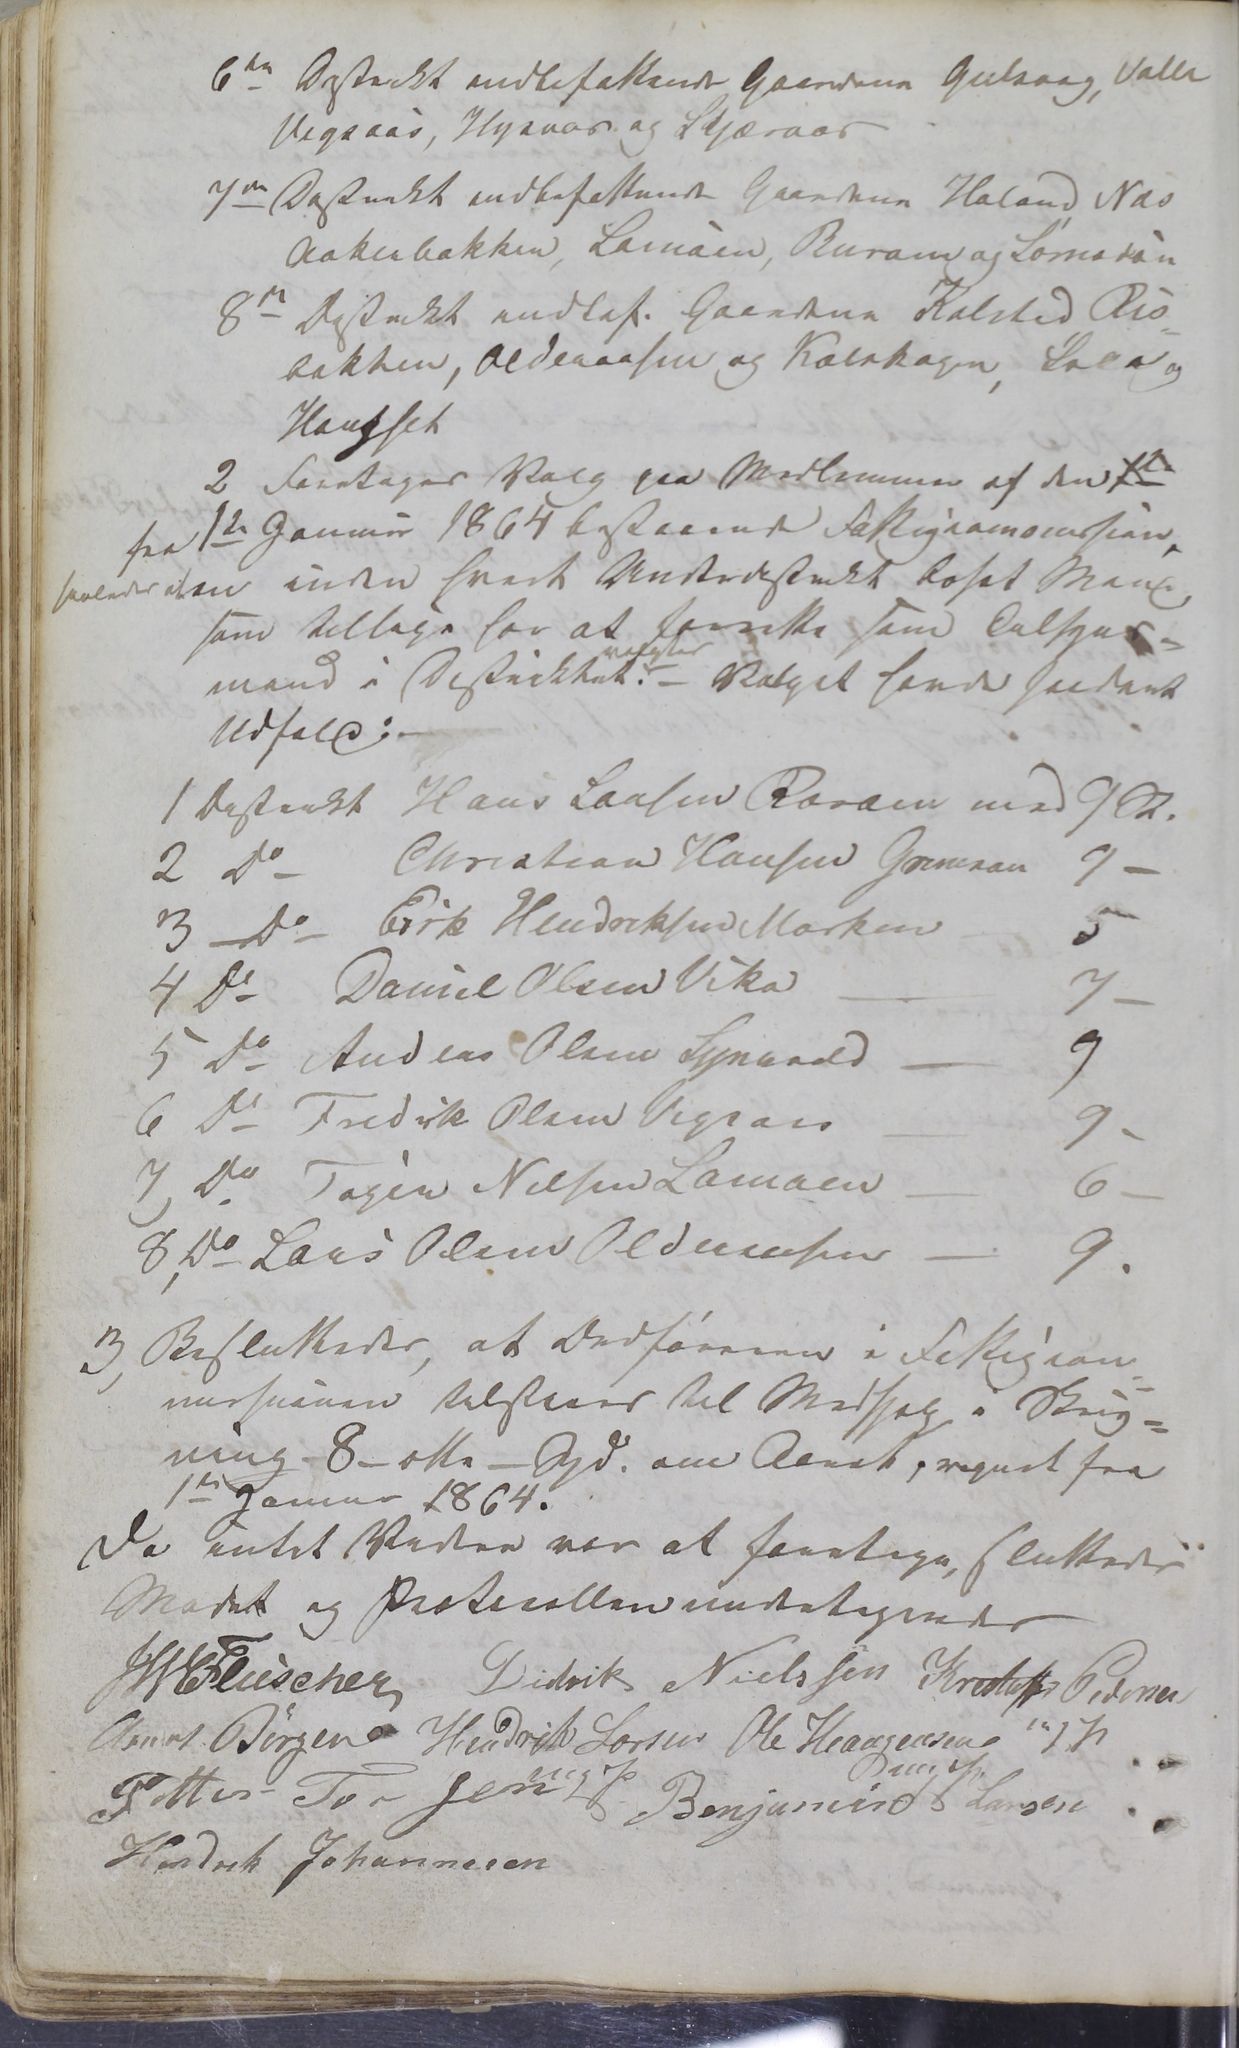 6te Distrikt indbefattende Gaardene Gulsvaag, Valla
Vegsaas, Hysvær og Skjærvær
7de Distrikt indbefattende Gaardene Haland, Næs
Aakerbakken, Lamoen, Ruram og Lomsdøn
8de Distrikt indbef. Gaardene Kolsted Ris-
bakken, Olderaasen og Kalskagen, og
Haugset
2 Foretages Valg paa Medlemmer af den
fra 1te Januar 1864 bestaaende Fattigcommission,
saaledes at en inden hvert Underdistrikt boset Mand,
som tillige har at forrette som Tilsyns-
mand i Distriktet. vælges – Valget havde saadant
Udfald:–
1 Distrikt Hans Larsen Raraen med 9 St.
2 Do – Christian Hansen Grimsøen 9 –
3 – Do – Erik Hendriksen Marken 5
4 Do – Daniel Olsen Vika — 7 –
5 Do – Andeas Olsen — 9
6 Do – Fredrik Olsen Vegsaas — 9 –
7, Do Nilsen Lamoen — 6 –
8, Do – Lars Olsen Olderaasen — 9.
3, Besluttedes, at Ordføreren i Fattigcom-
missionen tilstaaes til Medhjælp i Skriv-
ning – 8 – otte – Spd. om Aaret, regnet fra
1te Januar 1864.
Da intet Videre var at foretage, sluttedes
Mødet og Protocollen undertegnedes
Fleischer Didrik Nielssen Kristoffer Pedersen
Børgen Hendrik Larsen Ole Haagensen
Petter Benjamin Larsen
Hendrik Johannesen